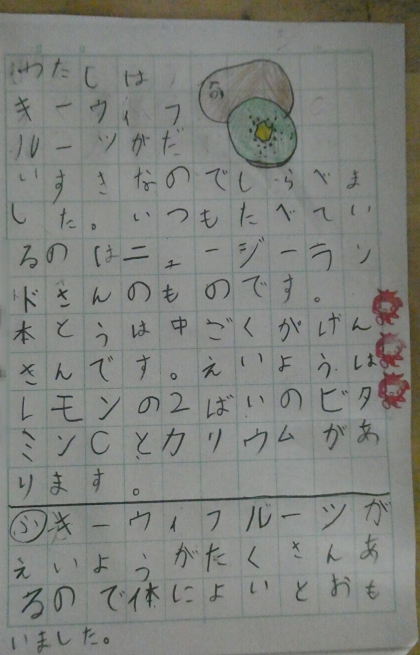 わたしは
キーウィフ
ルーツがだ
いすきなのでしらべま
した。いつもたべてい
るのはニュージーラン
ドさんのものです。
本とうは中ごくがげん
さんです。えいようは
レモンの2ばいのビタ
ミンCとカリウムがあ
ります。
ふキーウィフルーツが
えいようがたくさんあ
るので体によいとおも
いました。